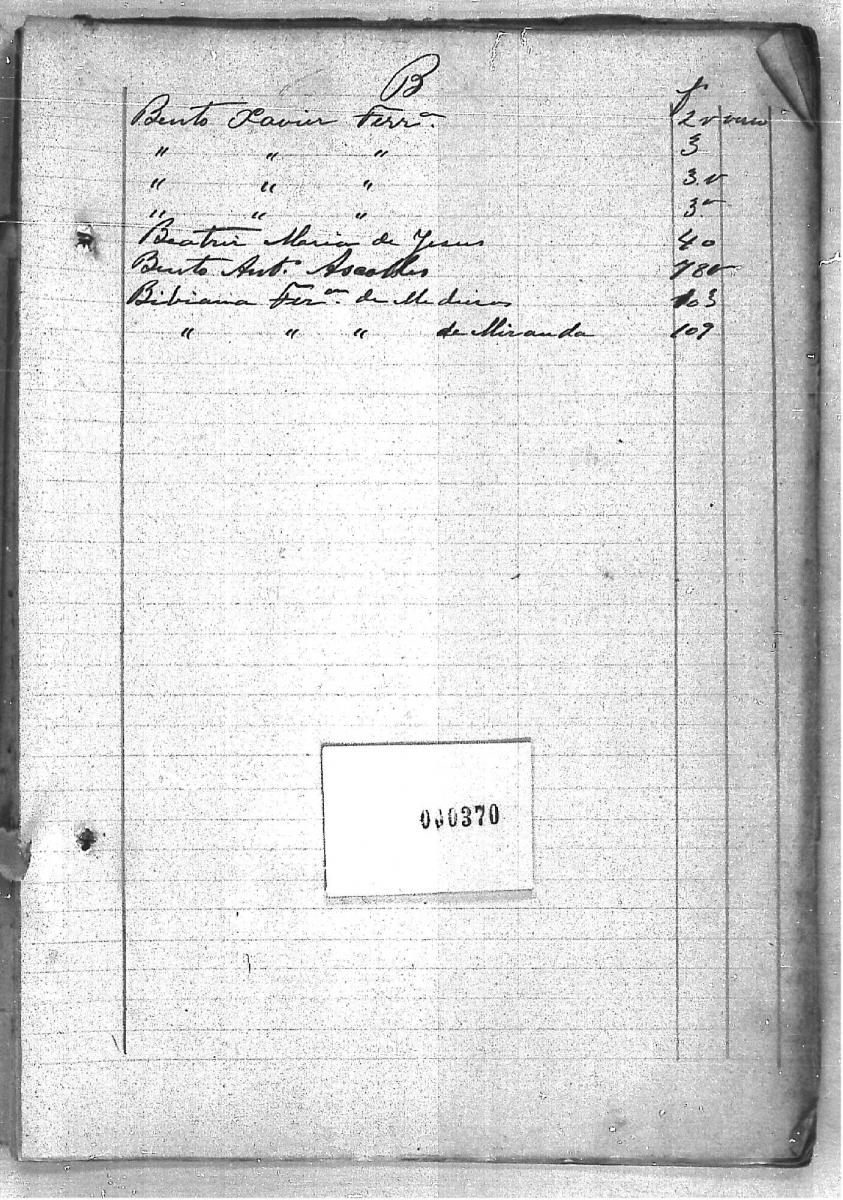 B
f
Bento Xavier Ferrª. 2 v verso
" " " 3
" " " 3 v
" " " 3 v
Beatriz Maria de Jesus 40
Bento Antº. 78 v
Bibiana Ferªª. de Medeiros 103
" " " de Miranda 109
000370